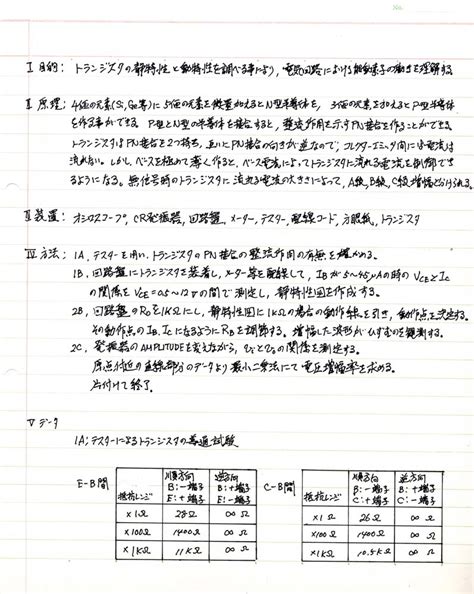 No.
I 目的: トランジスタの静特性と動特性を調べる事により, 電気回路における能動素子の働きを理解する
II 原理: 4価の元素(Si, Ge等)に5価の元素を微量加えるとN型半導体を, 3価の元素を加えるとP型半導体
を作る事ができる. P型とN型の半導体を接合すると, 整流作用を示すPN接合を作ることができる.
トランジスタはPN接合を2つ持ち, 互いにPN接合の向きが逆なので; コレクタ-エミッタ間に電流は
流れない. しかし, ベースを極めて薄く作ると, ベース電流によってトランジスタに流れる電流を制御でき
るようになる. 無信号時のトランジスタに流れる電流の大きさによって, A級, B級, C級増幅と分けられる.
III 装置: オシロスコープ, CR発振器, 回路盤, メーター, テスター, 配線コード, 方眼紙, トランジスタ
IV 方法: 1A, テスターを用い, トランジスタのPN接合の整流作用の有無を確かめる.
1B, 回路盤にトランジスタを装着し, メーター等を配線して, IBが5~45μAの時のVCEとIC
の関係をVCE=0.5~12Vの間で測定し, 静特性図を作成する.
2B, 回路盤のRcを1KΩにし, 静特性図に1KΩの場合の動作線を引き, 動作点を決定する.
その動作点のIB, ICになるようにRBを調節する. 増幅した波形がひずむのを観測する.
2C, 発振器のAMPLITUDEを変えながら, viとvoの関係を測定する.
原点付近の直線部分のデータより最小二乗法にて電圧増幅率を求める.
片付けて終了.
V データ
1A; テスターによるトランジスタの導通試験
E-B間
抵抗レンジ 順方向 B:-端子 E:+端子 逆方向 B:+端子 E:-端子
×1Ω 28Ω ∞Ω
×100Ω 1400Ω ∞Ω
×1KΩ 11KΩ ∞Ω
C-B間
抵抗レンジ 順方向 B:-端子 C:+端子 逆方向 B:+端子 C:-端子
×1Ω 26Ω ∞Ω
×100Ω 1400Ω ∞Ω
×1KΩ 10.5KΩ ∞Ω